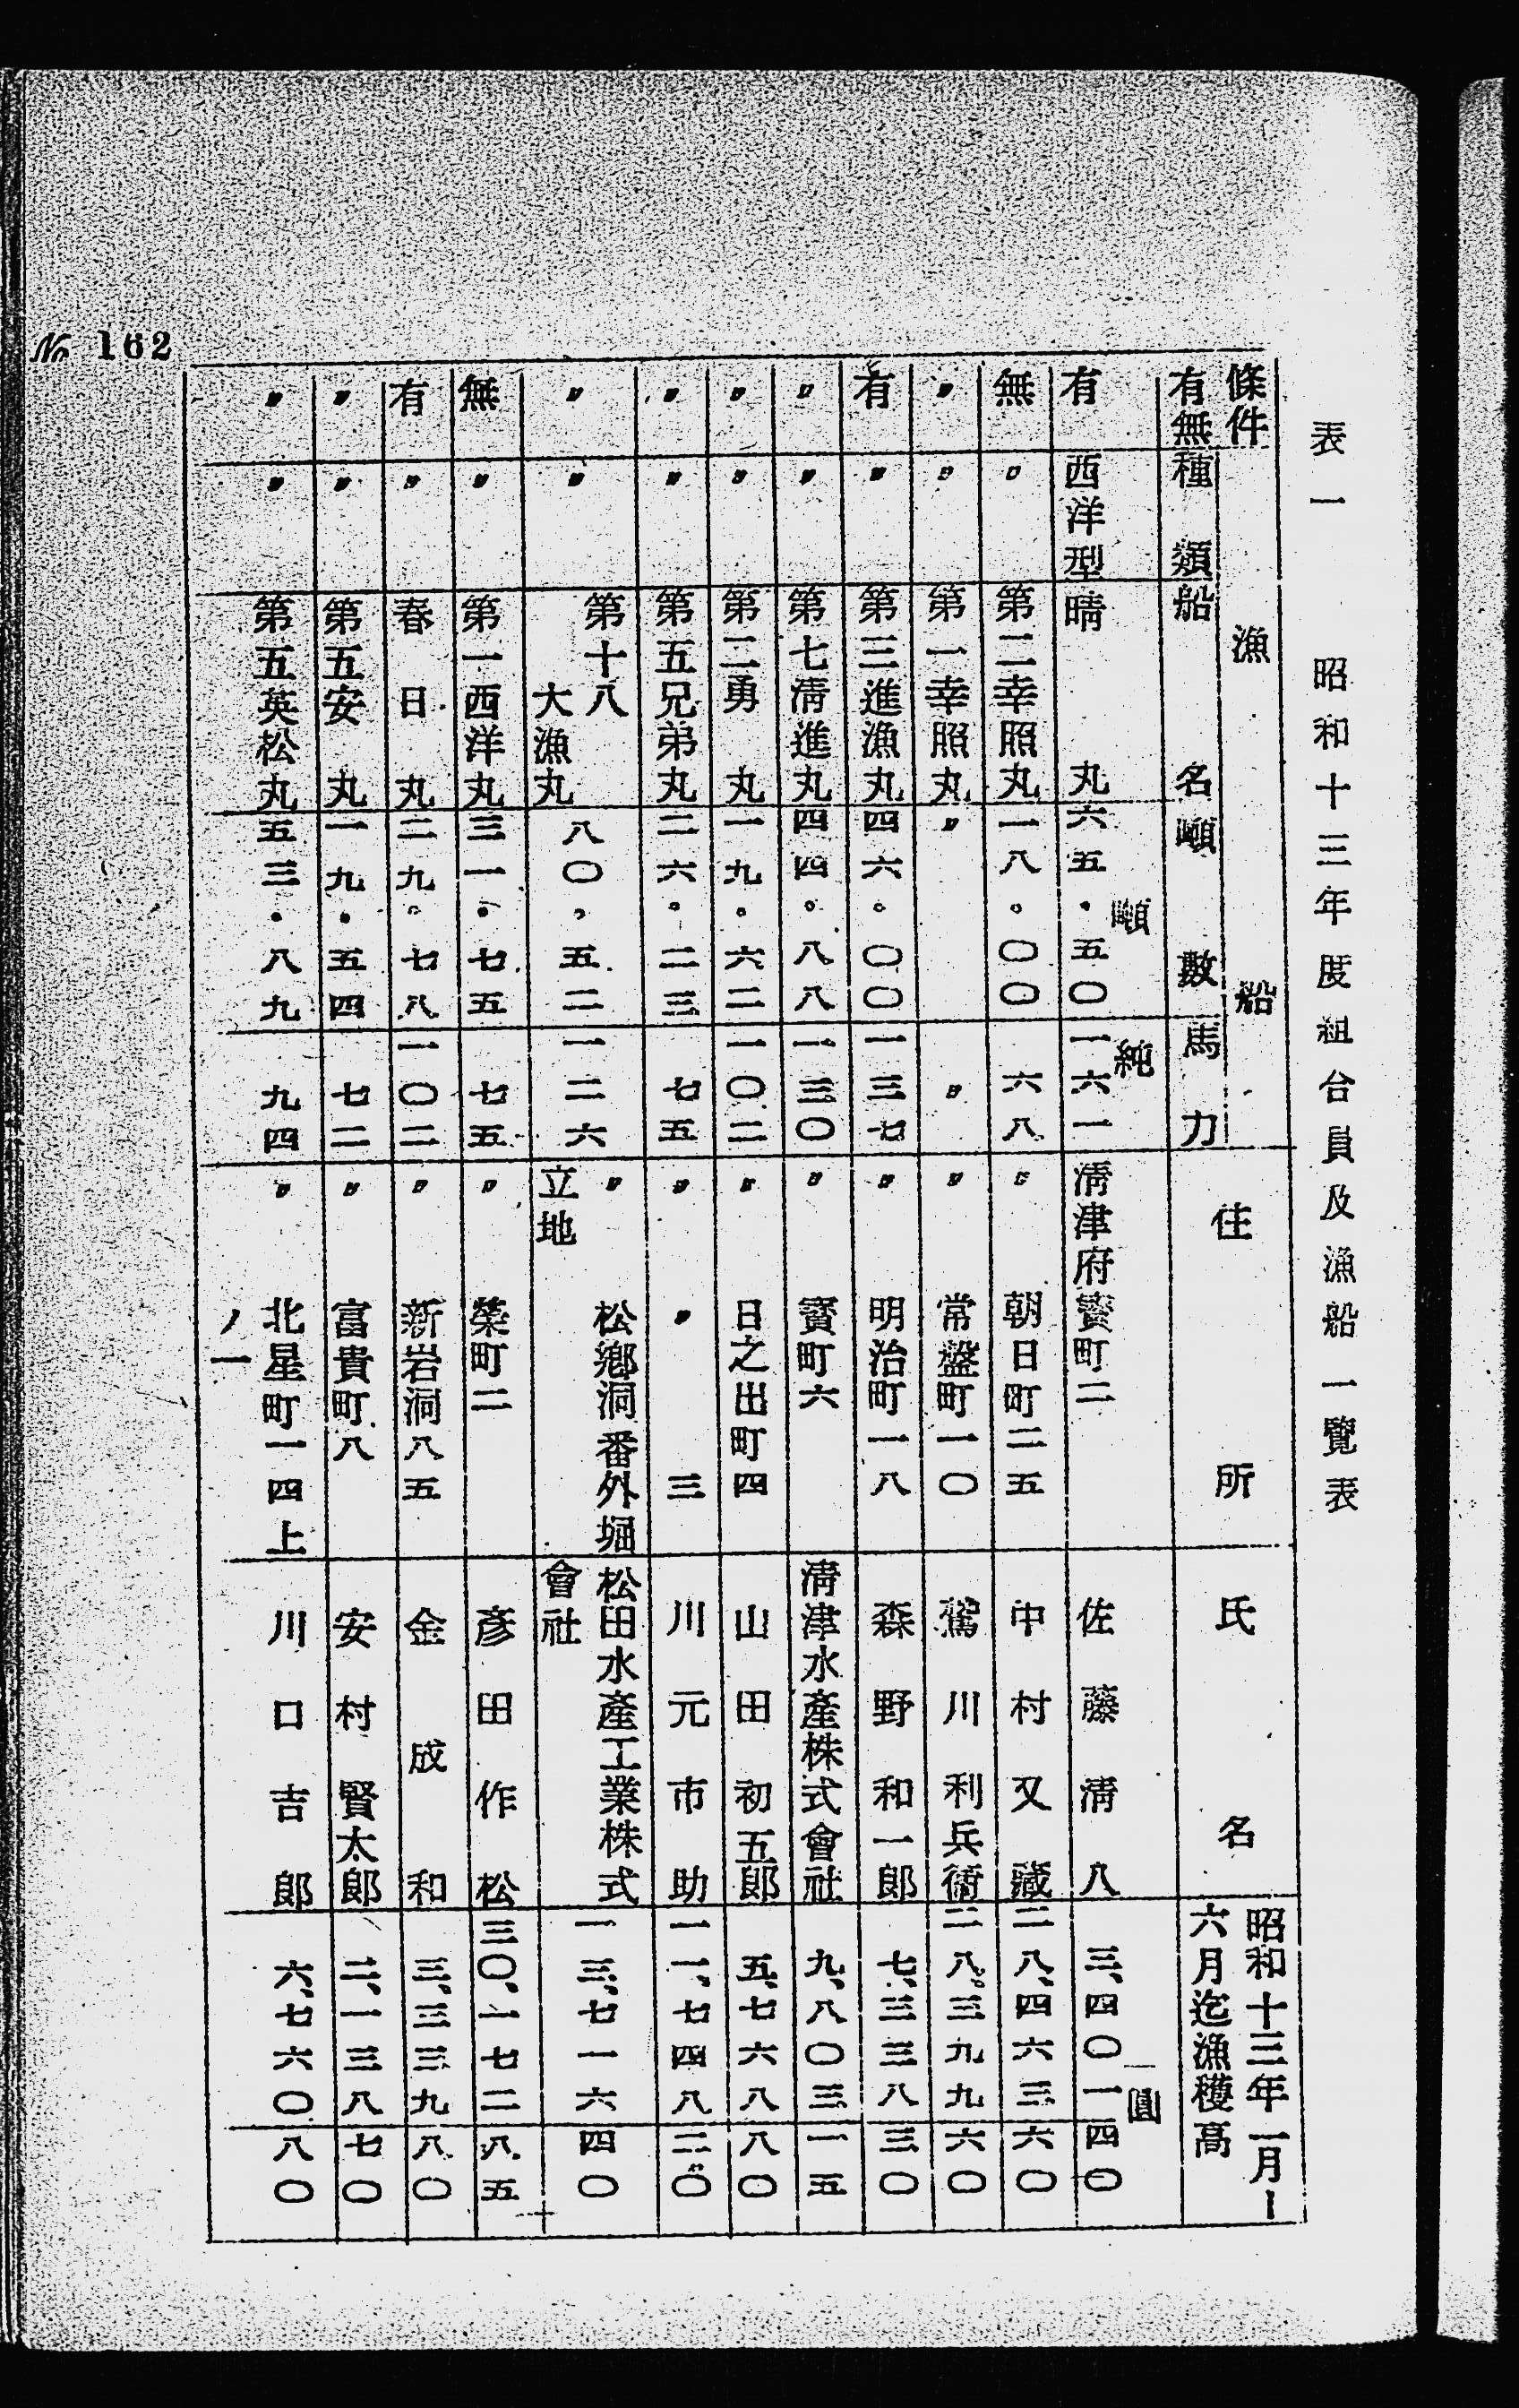 表一 昭和十三年度組合員及漁船一覽表
條件有無 漁船 種類 船名 噸數 馬力 住所 氏名 昭和十三年一月ー六月迄漁穫高
有 西洋型 晴丸 六五・五〇噸 純一六一 淸津府寶町二 佐藤淸八 三、四〇一圓四〇
無 〃 第二幸照丸 一八。〇〇 六八 〃 朝日町二五 中村又藏 二八、四六三六〇
〃 〃 第一幸照丸 〃 〃 〃 常盤町一〇 鴛川利兵衞 二八。三九九六〇
有 〃 第三進漁丸 四六。〇〇 一三七 〃 明治町一八 森野和一郎 七、三三八三〇
〃 〃 第七淸進丸 四四。八八 一三〇 〃 寶町六 淸津水產株式會社 九、八〇三一五
〃 〃 第二勇丸 一九。六二 一〇二 〃 日之出町四 山田初五郎 五、七六八八〇
〃 〃 第五兄弟丸 二六。二三 七五 〃 〃 三 川元市助 一一、七四八二〇
〃 〃 第十八大漁丸 八〇，五二 一二六 〃 松鄕洞番外堀立地 松田水產工業株式會社 一三、七一六四〇
無 〃 第一西洋丸 三一・七五 七五 〃 榮町二 彥田作松 三〇、一七二八五
有 〃 春日丸 二九。七八 一〇二 〃 新岩洞八五 金成和 三、三三九八〇
〃 〃 第五安丸 一九・五四 七二 〃 富貴町八 安村賢太郎 二、一三八七〇
〃 〃 第五英松丸 五三・八九 九四 〃 北星町一四上ノ一 川口吉郎 六、七六〇八〇
№ 162